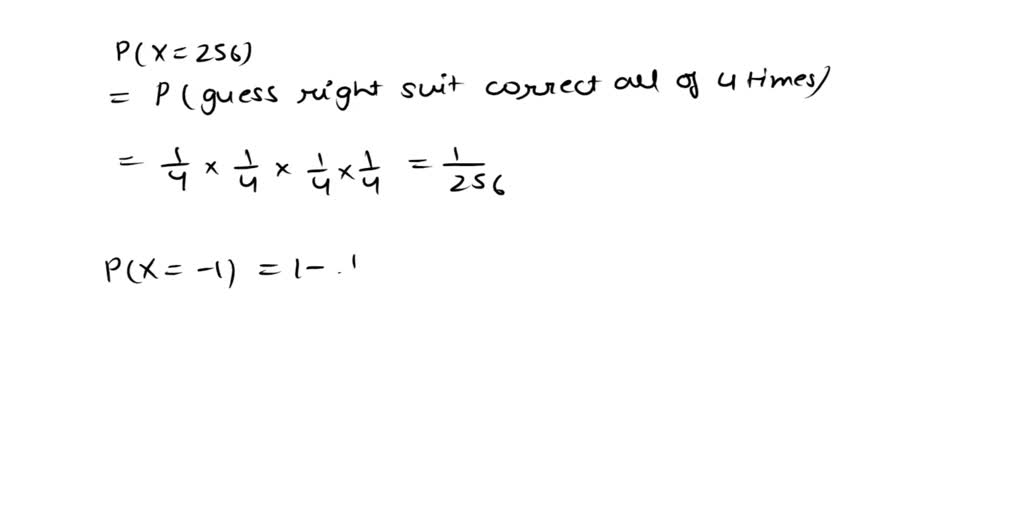 P(X=256)
= P(guess right suit correct all of 4 times)
= 1/4 × 1/4 × 1/4 × 1/4 = 1/256
P(X = -1) = 1 - .1